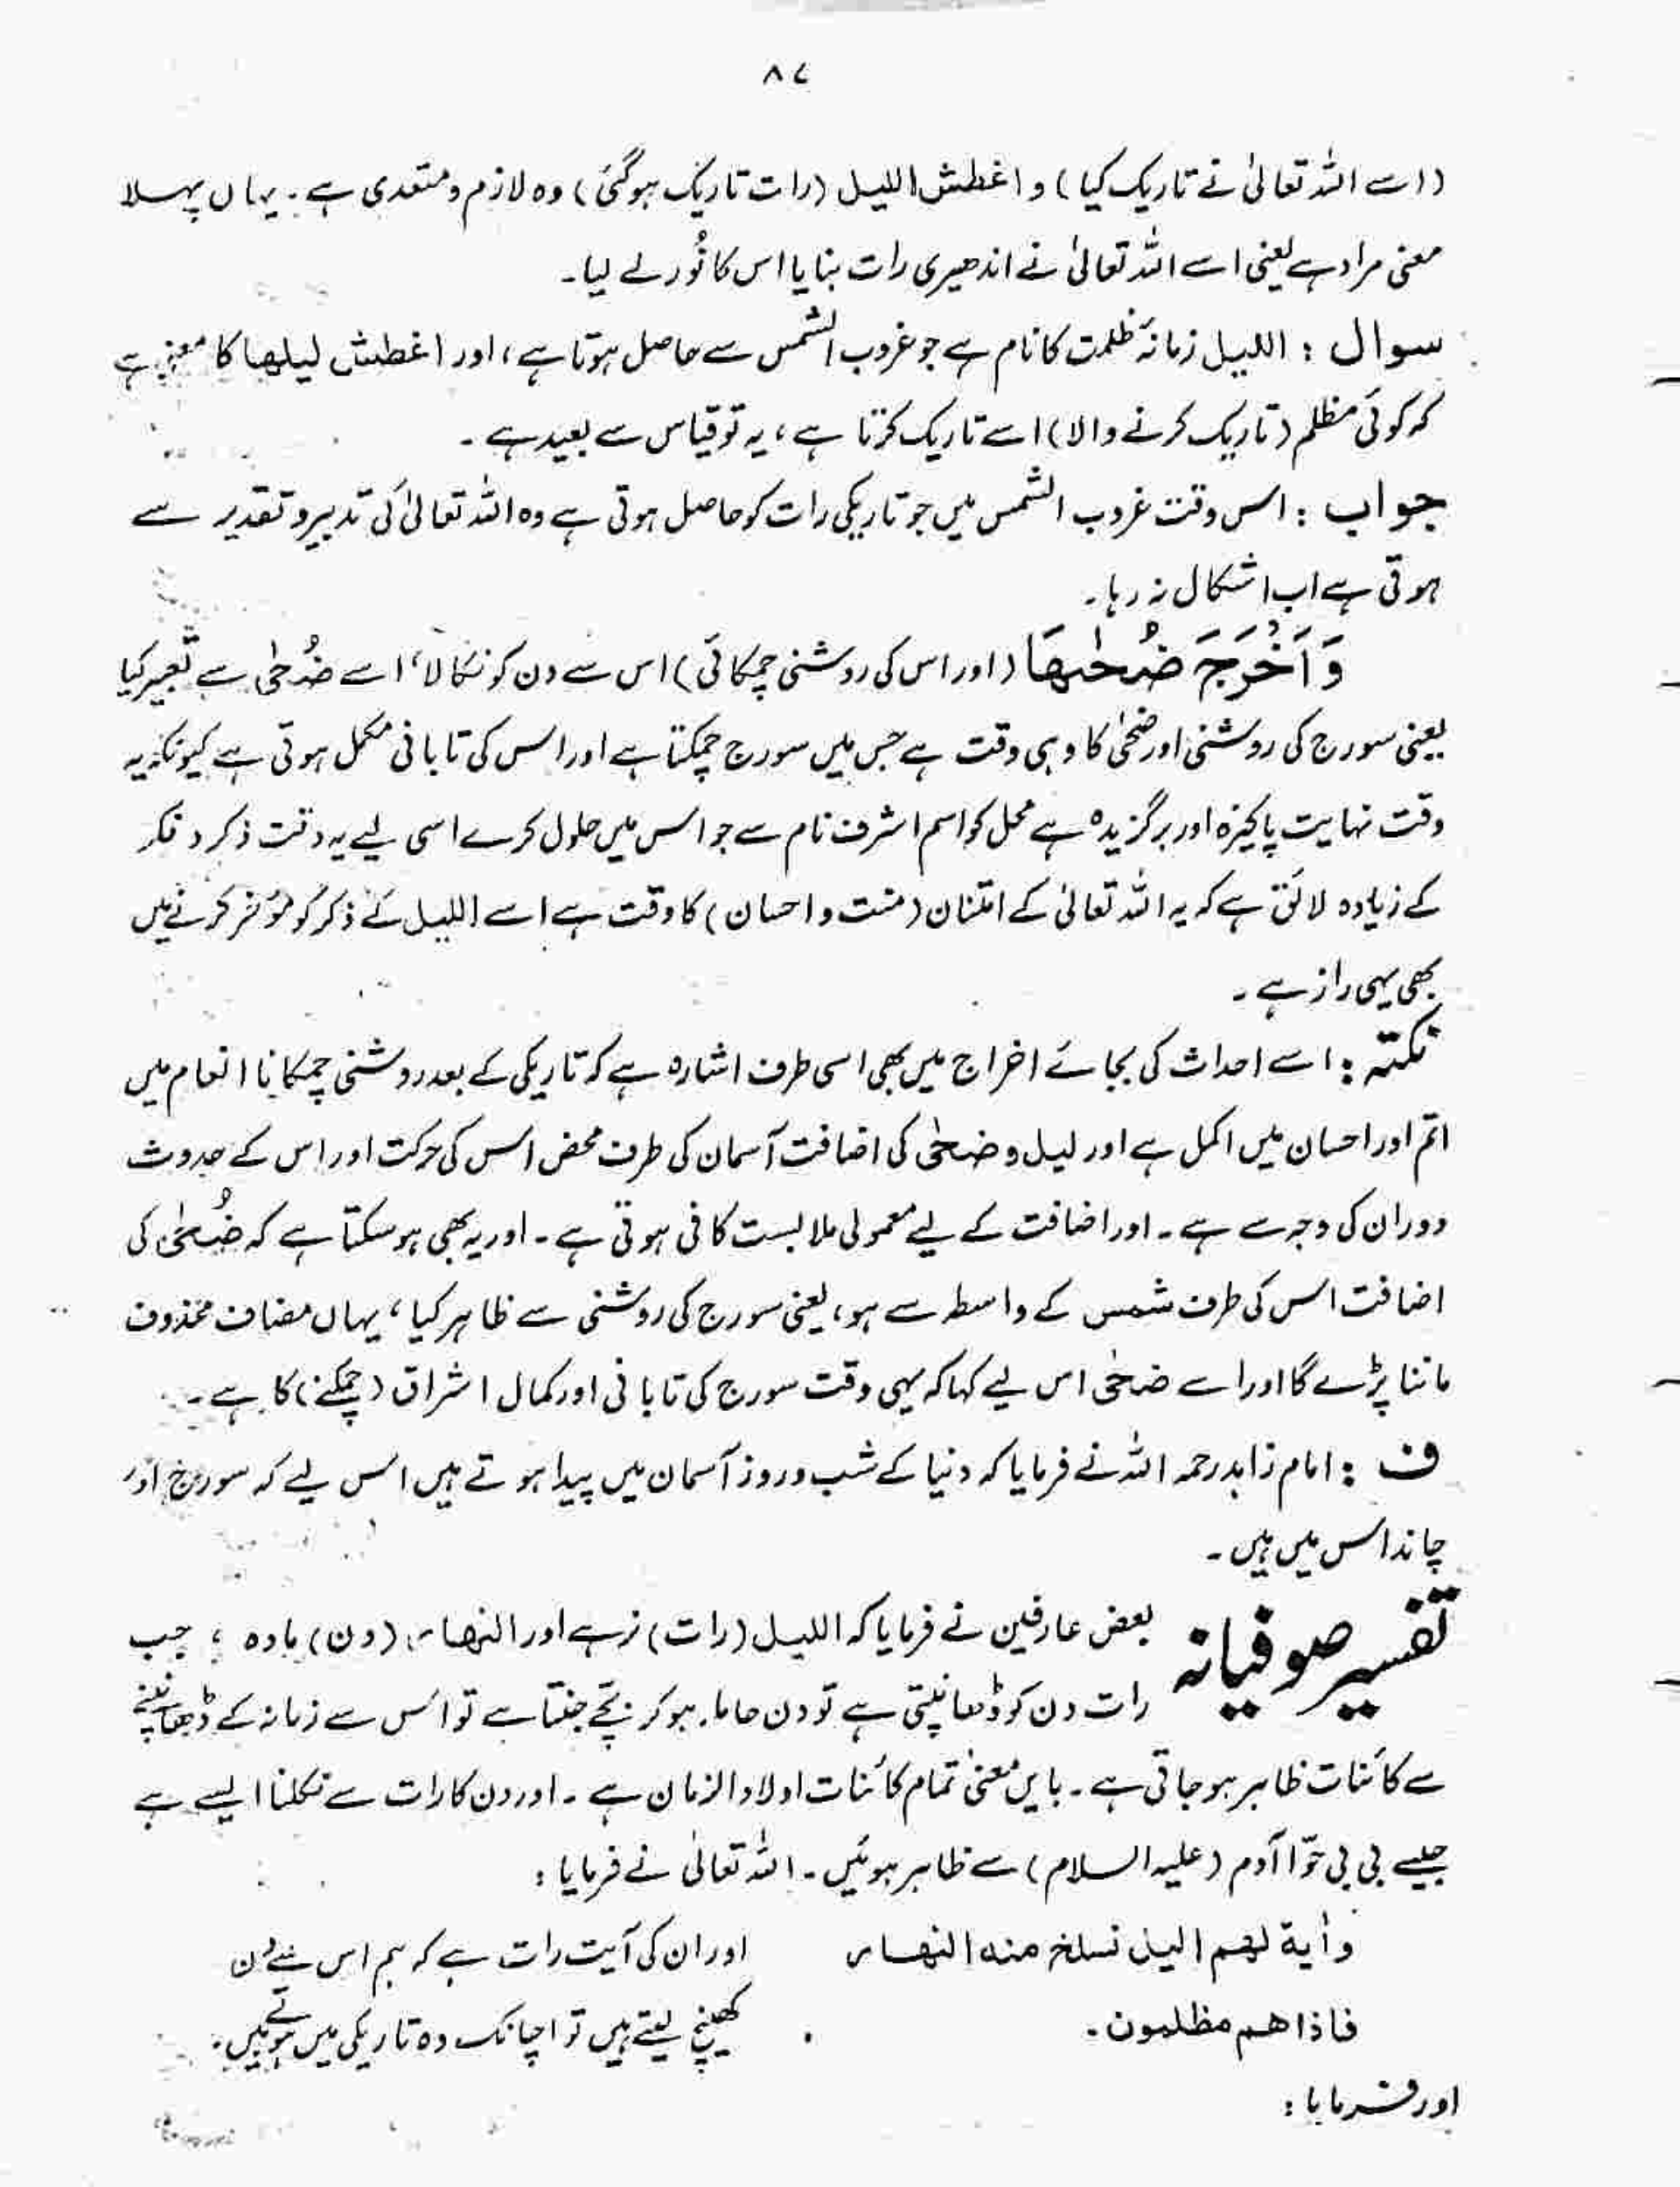 ۸۷
(اسے اللہ تعالیٰ نے تاریک کیا) و اغطش اللیل (رات تاریک ہوگئی) وہ لازم و متعدی ہے۔ یہاں پہلا
معنی مراد ہے یعنی اسے اللہ تعالیٰ نے اندھیری رات بنایا اس کا نُور لے لیا۔
سوال : اللیل زمانۂ ظلمت کا نام ہے جو غروب الشمس سے حاصل ہوتا ہے، اور اغطش لیلھا کا معنیٰ ہے
کہ کوئی مظلم (تاریک کرنے والا) اسے تاریک کرتا ہے، یہ تو قیاس سے بعید ہے۔
جواب : اس وقت غروب الشمس میں جو تاریکی رات کو حاصل ہوتی ہے وہ اللہ تعالیٰ کی تدبیر و تقدیر سے
ہوتی ہے اب اشکال نہ رہا۔
وَاَخْرَجَ ضُحٰىهَا (اور اس کی روشنی چمکائی) اس سے دن کو نکالا، اسے ضُحٰی سے تعبیر کیا
یعنی سورج کی روشنی اور ضحٰی کا وہی وقت ہے جس میں سورج چمکتا ہے اور اس کی تابانی مکمل ہوتی ہے کیونکہ یہ
وقت نہایت پاکیزہ اور برگزیدہ ہے محل کو اسم اشرف نام سے جو اس میں حلول کرے اسی لیے یہ وقت ذکر و فکر
کے زیادہ لائق ہے کہ یہ اللہ تعالیٰ کے امتنان (منت و احسان) کا وقت ہے اسے اللیل کے ذکر کو مؤخر کرنے میں
بھی یہی راز ہے۔
نکتہ : اسے احداث کی بجائے اخراج میں بھی اسی طرف اشارہ ہے کہ تاریکی کے بعد روشنی چمکانا انعام میں
اتم اور احسان میں اکمل ہے اور لیل و ضحٰی کی اضافت آسمان کی طرف محض اس کی حرکت اور اس کے حدوث
دوران کی وجہ سے ہے۔ اور اضافت کے لیے معمولی ملابست کافی ہوتی ہے۔ اور یہ بھی ہو سکتا ہے کہ ضُحٰی کی
اضافت اس کی طرف شمس کے واسطہ سے ہو، یعنی سورج کی روشنی سے ظاہر کیا، یہاں مضاف محذوف
ماننا پڑے گا اور اسے ضحٰی اس لیے کہا کہ یہی وقت سورج کی تابانی اور کمال اشراق (چمکنے) کا ہے۔
ف : امام زاہد رحمہ اللہ نے فرمایا کہ دنیا کے شب و روز آسمان میں پیدا ہوتے ہیں اس لیے کہ سورج اور
چاند اس میں ہیں۔
تفسیر صوفیانہ بعض عارفین نے فرمایا کہ اللیل (رات) نر ہے اور النھار (دن) مادہ ، جب
رات دن کو ڈھانپتی ہے تو دن حاملہ ہو کر بچے جنتا ہے تو اس سے زمانہ کے ڈھانپنے
سے کائنات ظاہر ہو جاتی ہے۔ بایں معنیٰ تمام کائنات اولاد الزمان ہے۔ اور دن کا رات سے نکلنا ایسے ہے
جیسے بی بی حوّا آدم (علیہ السلام) سے ظاہر ہوئیں۔ اللہ تعالیٰ نے فرمایا :
وأیة لھم الیل نسلخ منه النھار اور ان کی آیت رات ہے کہ ہم اس سے دن
فاذا ھم مظلمون۔ کھینچ لیتے ہیں تو اچانک وہ تاریکی میں ہوتے ہیں۔
اور فرمایا :